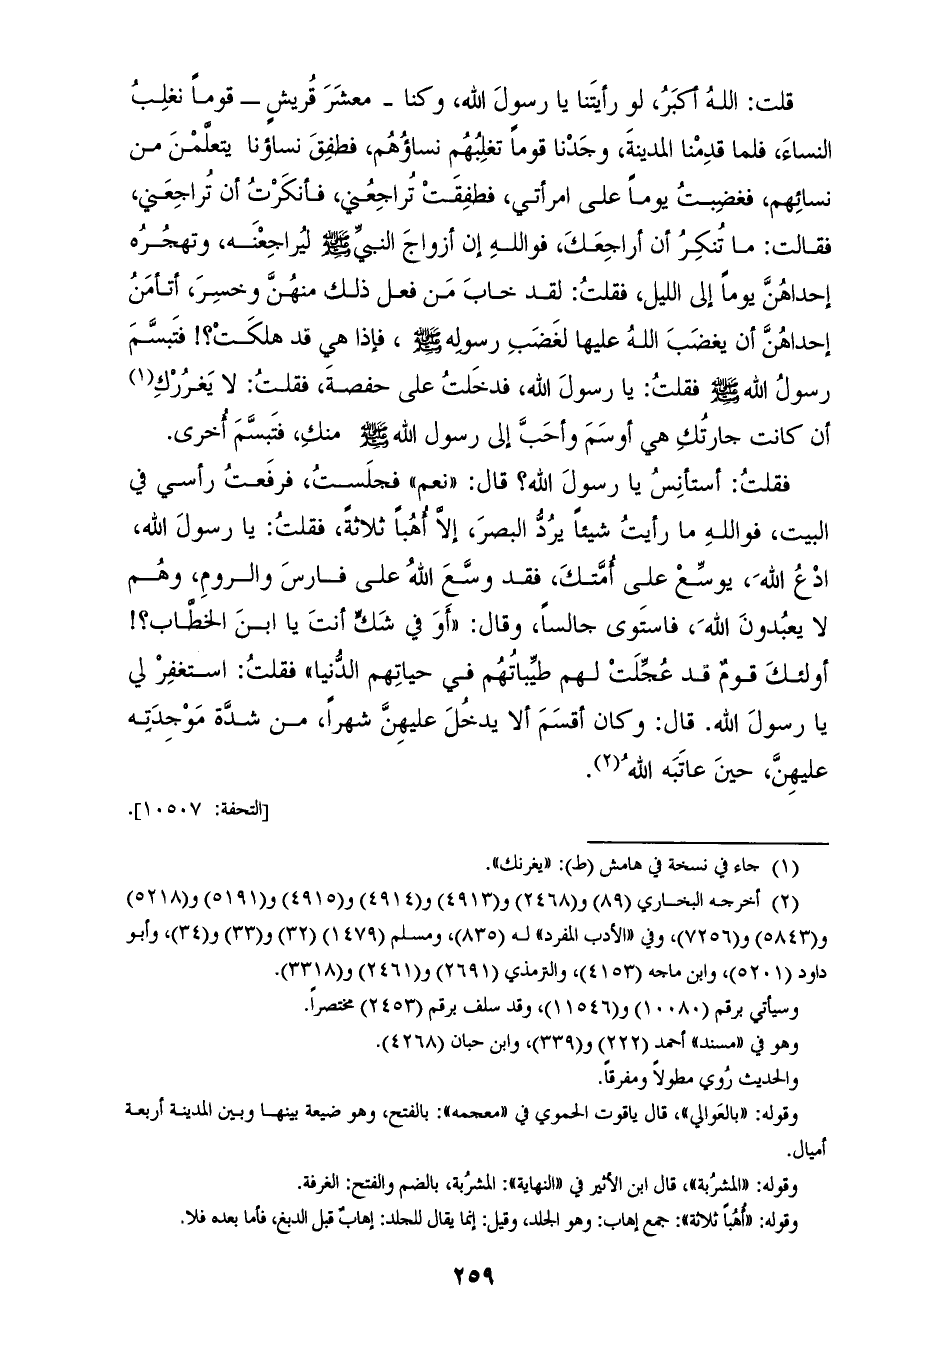 قلت: اللهُ أكبَرُ، لو رأيتَنا يا رسولَ الله، وكنا - معشَرَ قُريشٍ - قوماً نغلِبُ
النساءَ، فلما قدِمْنا المدينةَ، وجَدْنا قوماً تغلِبُهُم نساؤُهُم، فطفِقَ نساؤنا يتعلَّمْنَ من
نسائِهم، فغضِبتُ يوماً على امرأتي، فطفِقَتْ تُراجِعُني، فأنكَرْتُ أن تُراجِعَني،
فقالت: ما تُنكِرُ أن أراجعَكَ، فواللهِ إن أزواجَ النبيِّ ﷺ ليُراجِعْنَه، وتهجُرُه
إحداهُنَّ يوماً إلى الليل، فقلتُ: لقد خابَ مَن فعل ذلك منهُنَّ وخسِرَ، أتأمَنُ
إحداهُنَّ أن يغضَبَ اللهُ عليها لغَضَبِ رسولِه ﷺ ، فإذا هي قد هلكَتْ؟! فتَبسَّمَ
رسولُ الله ﷺ فقلتُ: يا رسولَ الله، فدخَلتُ على حفصةَ، فقلتُ: لا يَغرُرْكِ(١)
أن كانت جارتُكِ هي أوسَمَ وأحَبَّ إلى رسول الله ﷺ منكِ، فتَبسَّمَ أُخرى.
فقلتُ: أستأنِسُ يا رسولَ الله؟ قال: «نعم» فجلَستُ، فرفَعتُ رأسي في
البيت، فواللهِ ما رأيتُ شيئاً يرُدُّ البصرَ، إلَّا أُهُباً ثلاثةً، فقلتُ: يا رسولَ الله،
ادْعُ اللهَ، يوسِّعْ على أُمَّتكَ، فقد وسَّعَ اللهُ على فارسَ والرومِ، وهُم
لا يعبُدونَ اللهَ، فاستَوى جالساً، وقال: «أَوَ في شَكٍّ أنتَ يا ابنَ الخطَّاب؟!
أولئكَ قومٌ قد عُجِّلَتْ لهم طيِّباتُهُم في حياتِهم الدُّنيا» فقلتُ: استغفِرْ لي
يا رسولَ الله. قال: وكان أقسَمَ ألا يدخُلَ عليهِنَّ شهراً، من شدَّة مَوْجِدَتِه
عليهِنَّ، حينَ عاتَبَه اللهُ(٢).
[التحفة: ١٠٥٠٧].
(١) جاء في نسخة في هامش (ط): «يغرنك».
(٢) أخرجه البخاري (٨٩) و(٢٤٦٨) و(٤٩١٣) و(٤٩١٤) و(٤٩١٥) و(٥١٩١) و(٥٢١٨)
و(٥٨٤٣) و(٧٢٥٦)، وفي «الأدب المفرد» له (٨٣٥)، ومسلم (١٤٧٩) (٣٢) و(٣٣) و(٣٤)، وأبو
داود (٥٢٠١)، وابن ماجه (٤١٥٣)، والترمذي (٢٦٩١) و(٢٤٦١) و(٣٣١٨).
وسيأتي برقم (١٠٠٨٠) و(١١٥٤٦)، وقد سلف برقم (٢٤٥٣) مختصراً.
وهو في «مسند» أحمد (٢٢٢) و(٣٣٩)، وابن حبان (٤٢٦٨).
والحديث رُوي مطولاً ومفرقاً.
وقوله: «بالعَوالي»، قال ياقوت الحموي في «معجمه»: بالفتح، وهو ضيعة بينها وبين المدينة أربعة
أميال.
وقوله: «المشرُبة»، قال ابن الأثير في «النهاية»: المشرُبة، بالضم والفتح: الغرفة.
وقوله: «أُهُباً ثلاثة»: جمع إهاب: وهو الجلد، وقيل: إنما يقال للجلد: إهابٌ قبل الدبغ، فأما بعده فلا.
٢٥٩